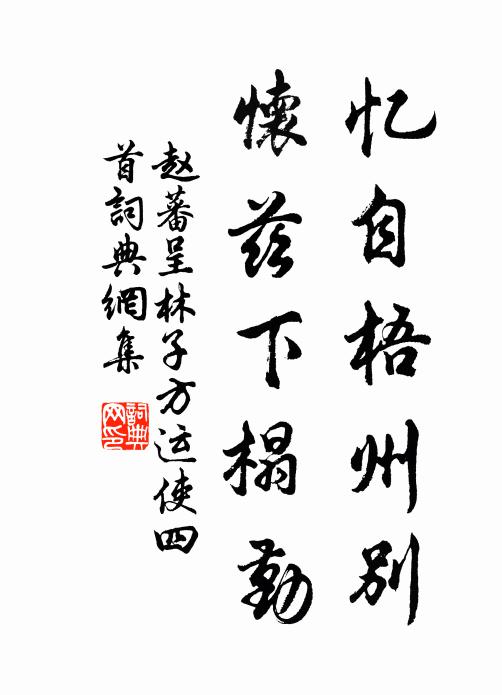 忆自梧州别
懷兹下榻勤
赵蕃呈林子方运使四
首詞典網集
詞典网印